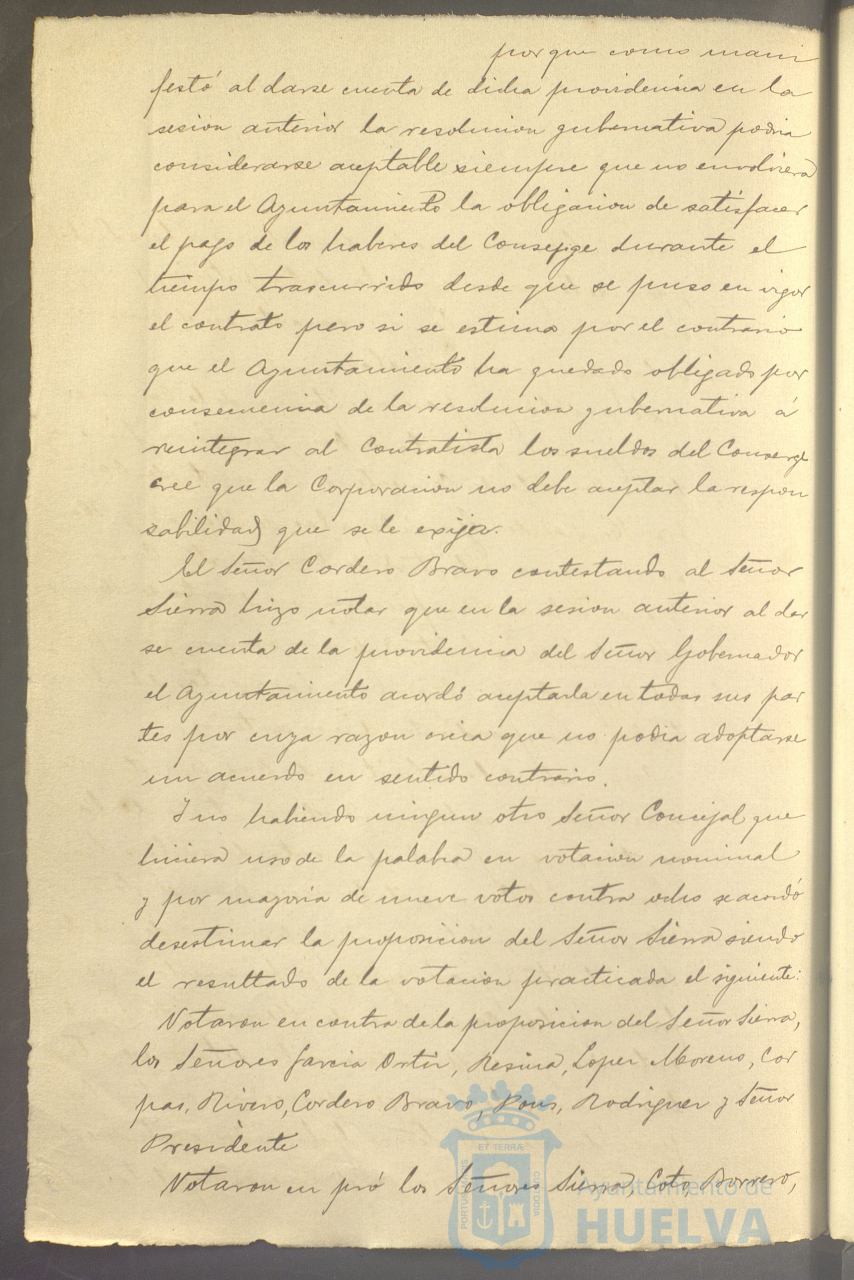 porque como mani
festó al darse cuenta de dicha providencia en la
sesion anterior la resolucion gubernativa podria
considerarse aceptable siempre que no envolviera
para el Ayuntamiento la obligacion de satisfacer
el pago de los haberes del Conserge durante el
tiempo trascurrido desde que se puso en vigor
el contrato pero si se estima por el contrario
que el Ayuntamiento ha quedado obligado por
consecuencia de la resolucion gubernativa á
reintegrar al Contratista los sueldos del Conserge
cree que la Corporacion no debe aceptar la respon
sabilidad que se le exija.
El Señor Cordero Bravo contestando al Señor
Sierra hizo notar que en la sesion anterior al dar
se cuenta de la providencia del Señor Gobernador
el Ayuntamiento acordó aceptarla en todas sus par
tes por cuya razon creia que no podia adoptarse
un acuerdo en sentido contrario.
Y no habiendo ningun otro Señor Concejal que
hiciera uso de la palabra en votacion nominal
y por mayoria de nueve votos contra ocho se acordó
desestimar la proposicion del Señor Sierra siendo
el resultado de la votacion practicada el siguiente:
Votaron en contra de la proposicion del Señor Sierra,
los Señores Garcia Ortiz, Resina, Lopez Moreno, Cor
pas, Rivero, Cordero Bravo, Pons, Rodriguez y Señor
Presidente
Votaron en pró los Señores Sierra, Coto, Borrero,
PORTUS MARIS ET TERRÆ CUSTODIA
Ayuntamiento de
HUELVA